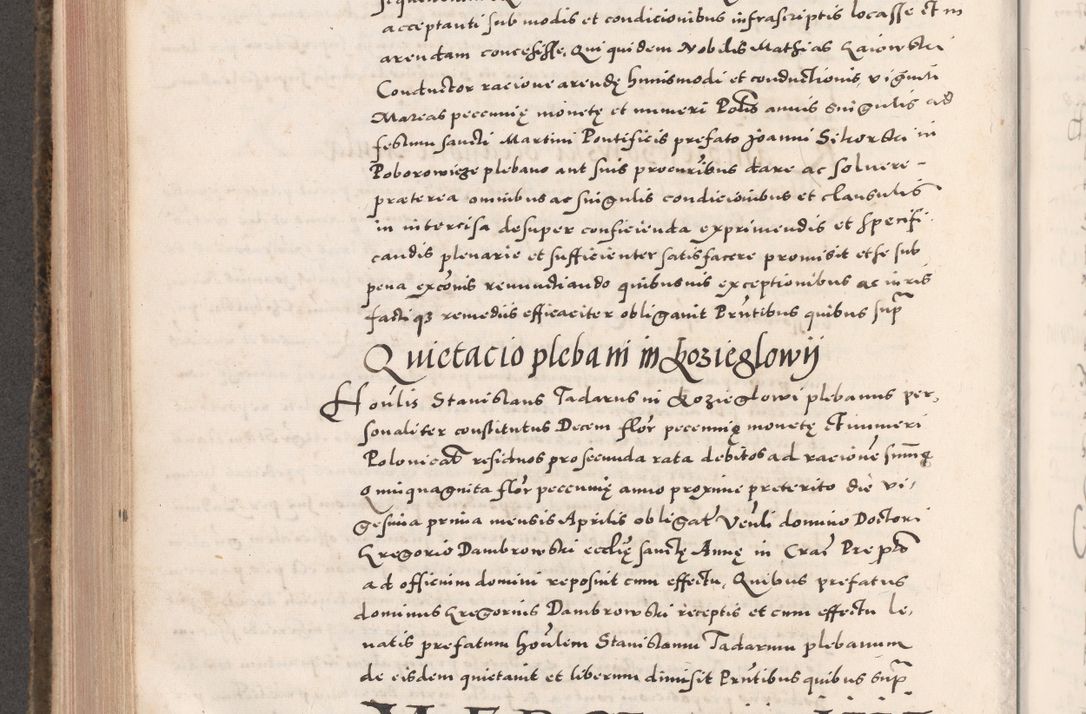 acceptanti sub modis et condicionibus infrascriptis locasse et in
arendam concessisse, Qui quidem Nobilis Mathias Gaiowski
Conductor racione arendę huiusmodi et conductionis, viginti
Marcas pecunię monetę et numeri Polis annis singulis ad
festum sancti Martini Pontificis prefato Joanni Sikorski in
Poborowicze plebano aut suis procuribus dare ac soluere -
præterea omnibus ac singulis condicionibus et clausulis
in intercisa desuper conficienda exprimendis et specifi-
candis plenarie et sufficienter satisfacere promisit et se sub
pena excōnis renunctiando quibusuis exceptionibus ac iuris
factiqꝫ remediis efficaciter obligauit Prntibus quibus supra
Quietacio plebani in Kozieglowÿ
Honlis Stanislaus Tadarus in Kozieglowi plebanus per,
sonaliter constitutus Decem flor pecunię monetę et numeri
Polonicat residuos pro secunda rata debitos ad racionē summę
Quinquaginta flor pecunię anno proxime preterito die vi,
gesima prima mensis Aprilis obligat Venli domino Doctori
Gregorio Dambrowski ecclię sanctę Annę in Cras Prepto
ad officium domini reposuit cum effectu, Quibus prefatus
dominus Gregorius Dambrowski receptis et cum effectu le,
uatis prefatum honlem Stanislaum Tadarum plebanum
de eisdem quietauit et liberum dimisit Prntibus quibus supra